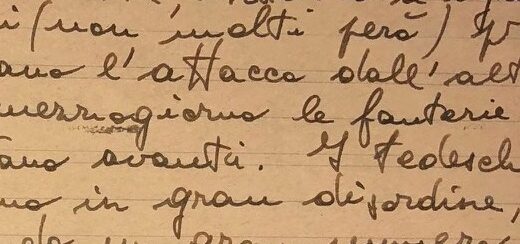 i (non molti però)
ano l'attacco dall'alt
mezzogiorno le fanterie
ano avanti. I Tedesch
no in gran disordine,
da un gran numero